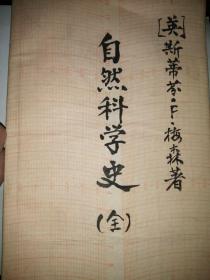 [英]斯蒂芬·F·梅森著
自然科学史
(全)